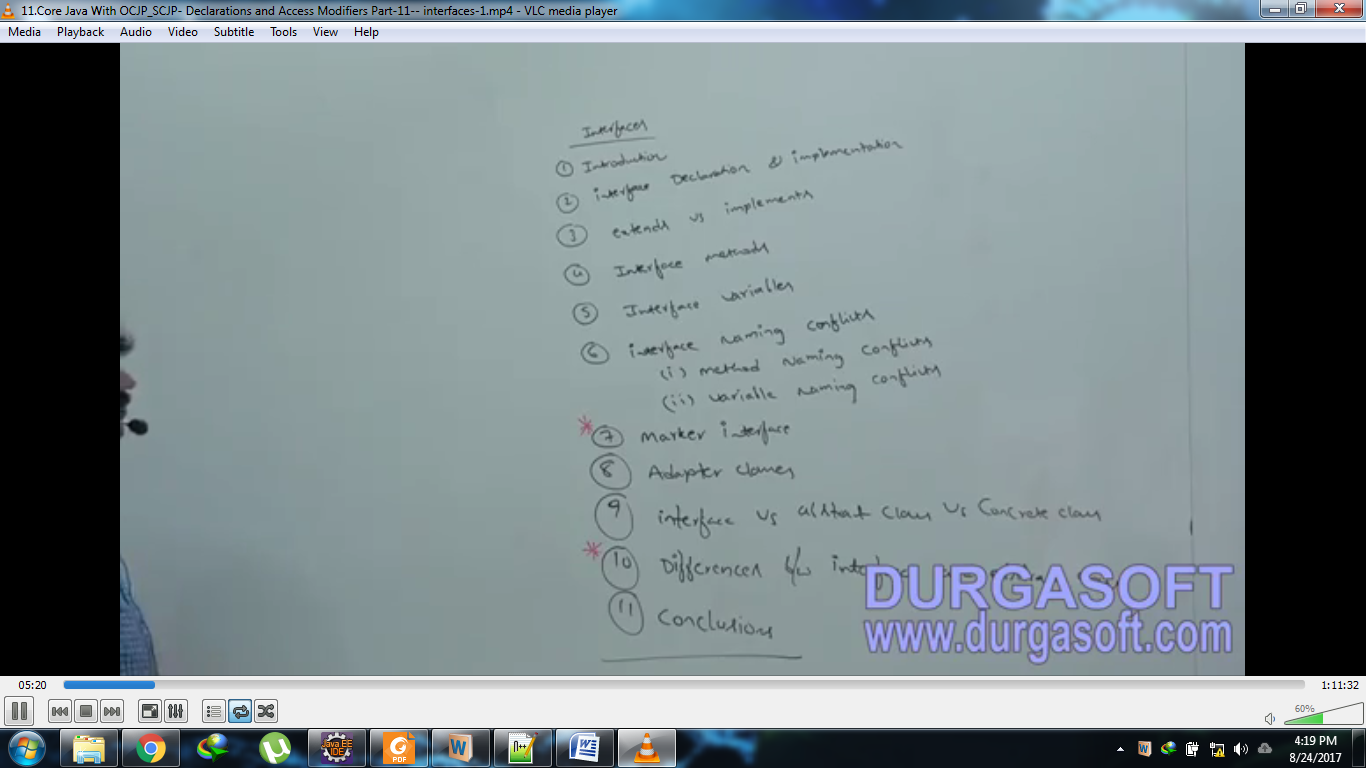 11.Core Java With OCJP_SCJP- Declarations and Access Modifiers Part-11-- interfaces-1.mp4 - VLC media player
Media Playback Audio Video Subtitle Tools View Help
Interfaces
① Introduction
② interface Declaration & implementation
③ extends vs implements
④ Interface methods
⑤ Interface variables
⑥ interface Naming conflicts
(i) method Naming conflicts
(ii) variable naming conflicts
* ⑦ Marker interface
⑧ Adapter classes
⑨ interface vs abstract class vs Concrete class
* ⑩ Differences b/w
⑪ Conclusions
DURGASOFT
www.durgasoft.com
05:20 1:11:32
60%
Java EE IDE PDF W N++ W W 4:19 PM
8/24/2017